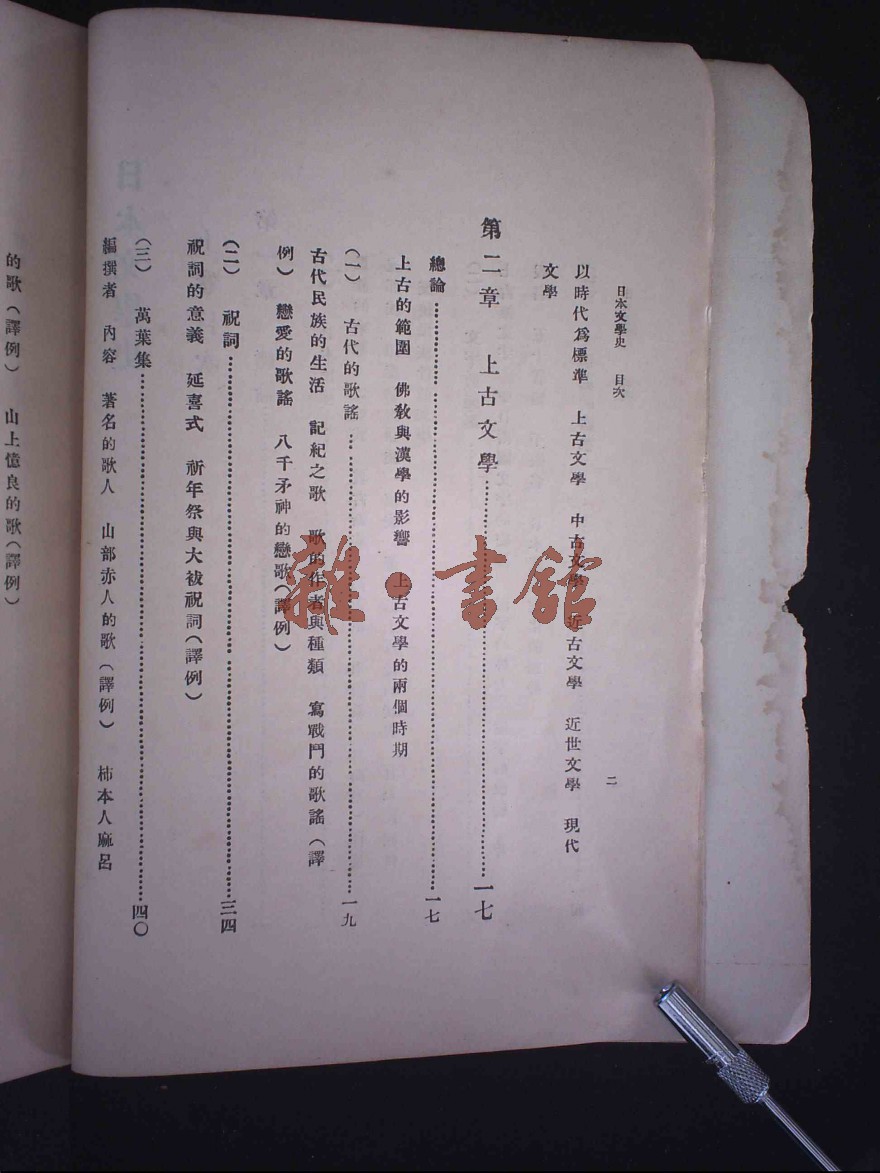 日本文學史　目次
二
以時代爲標準　上古文學　中古文學　近古文學　近世文學　現代
文學
第二章　上古文學…………一七
總論…………一七
上古的範圍　佛敎與漢學的影響　上古文學的兩個時期
（一）　古代的歌謠…………一九
古代民族的生活　記紀之歌　歌的作者與種類　寫戰鬥的歌謠（譯
例）　戀愛的歌謠　八千矛神的戀歌（譯例）
（二）　祝詞…………三四
祝詞的意義　延喜式　祈年祭與大祓祝詞（譯例）
（三）　萬葉集…………四〇
編撰者　內容　著名的歌人　山部赤人的歌（譯例）　柿本人麻呂
的歌（譯例）　山上憶良的歌（譯例）
雜·書館